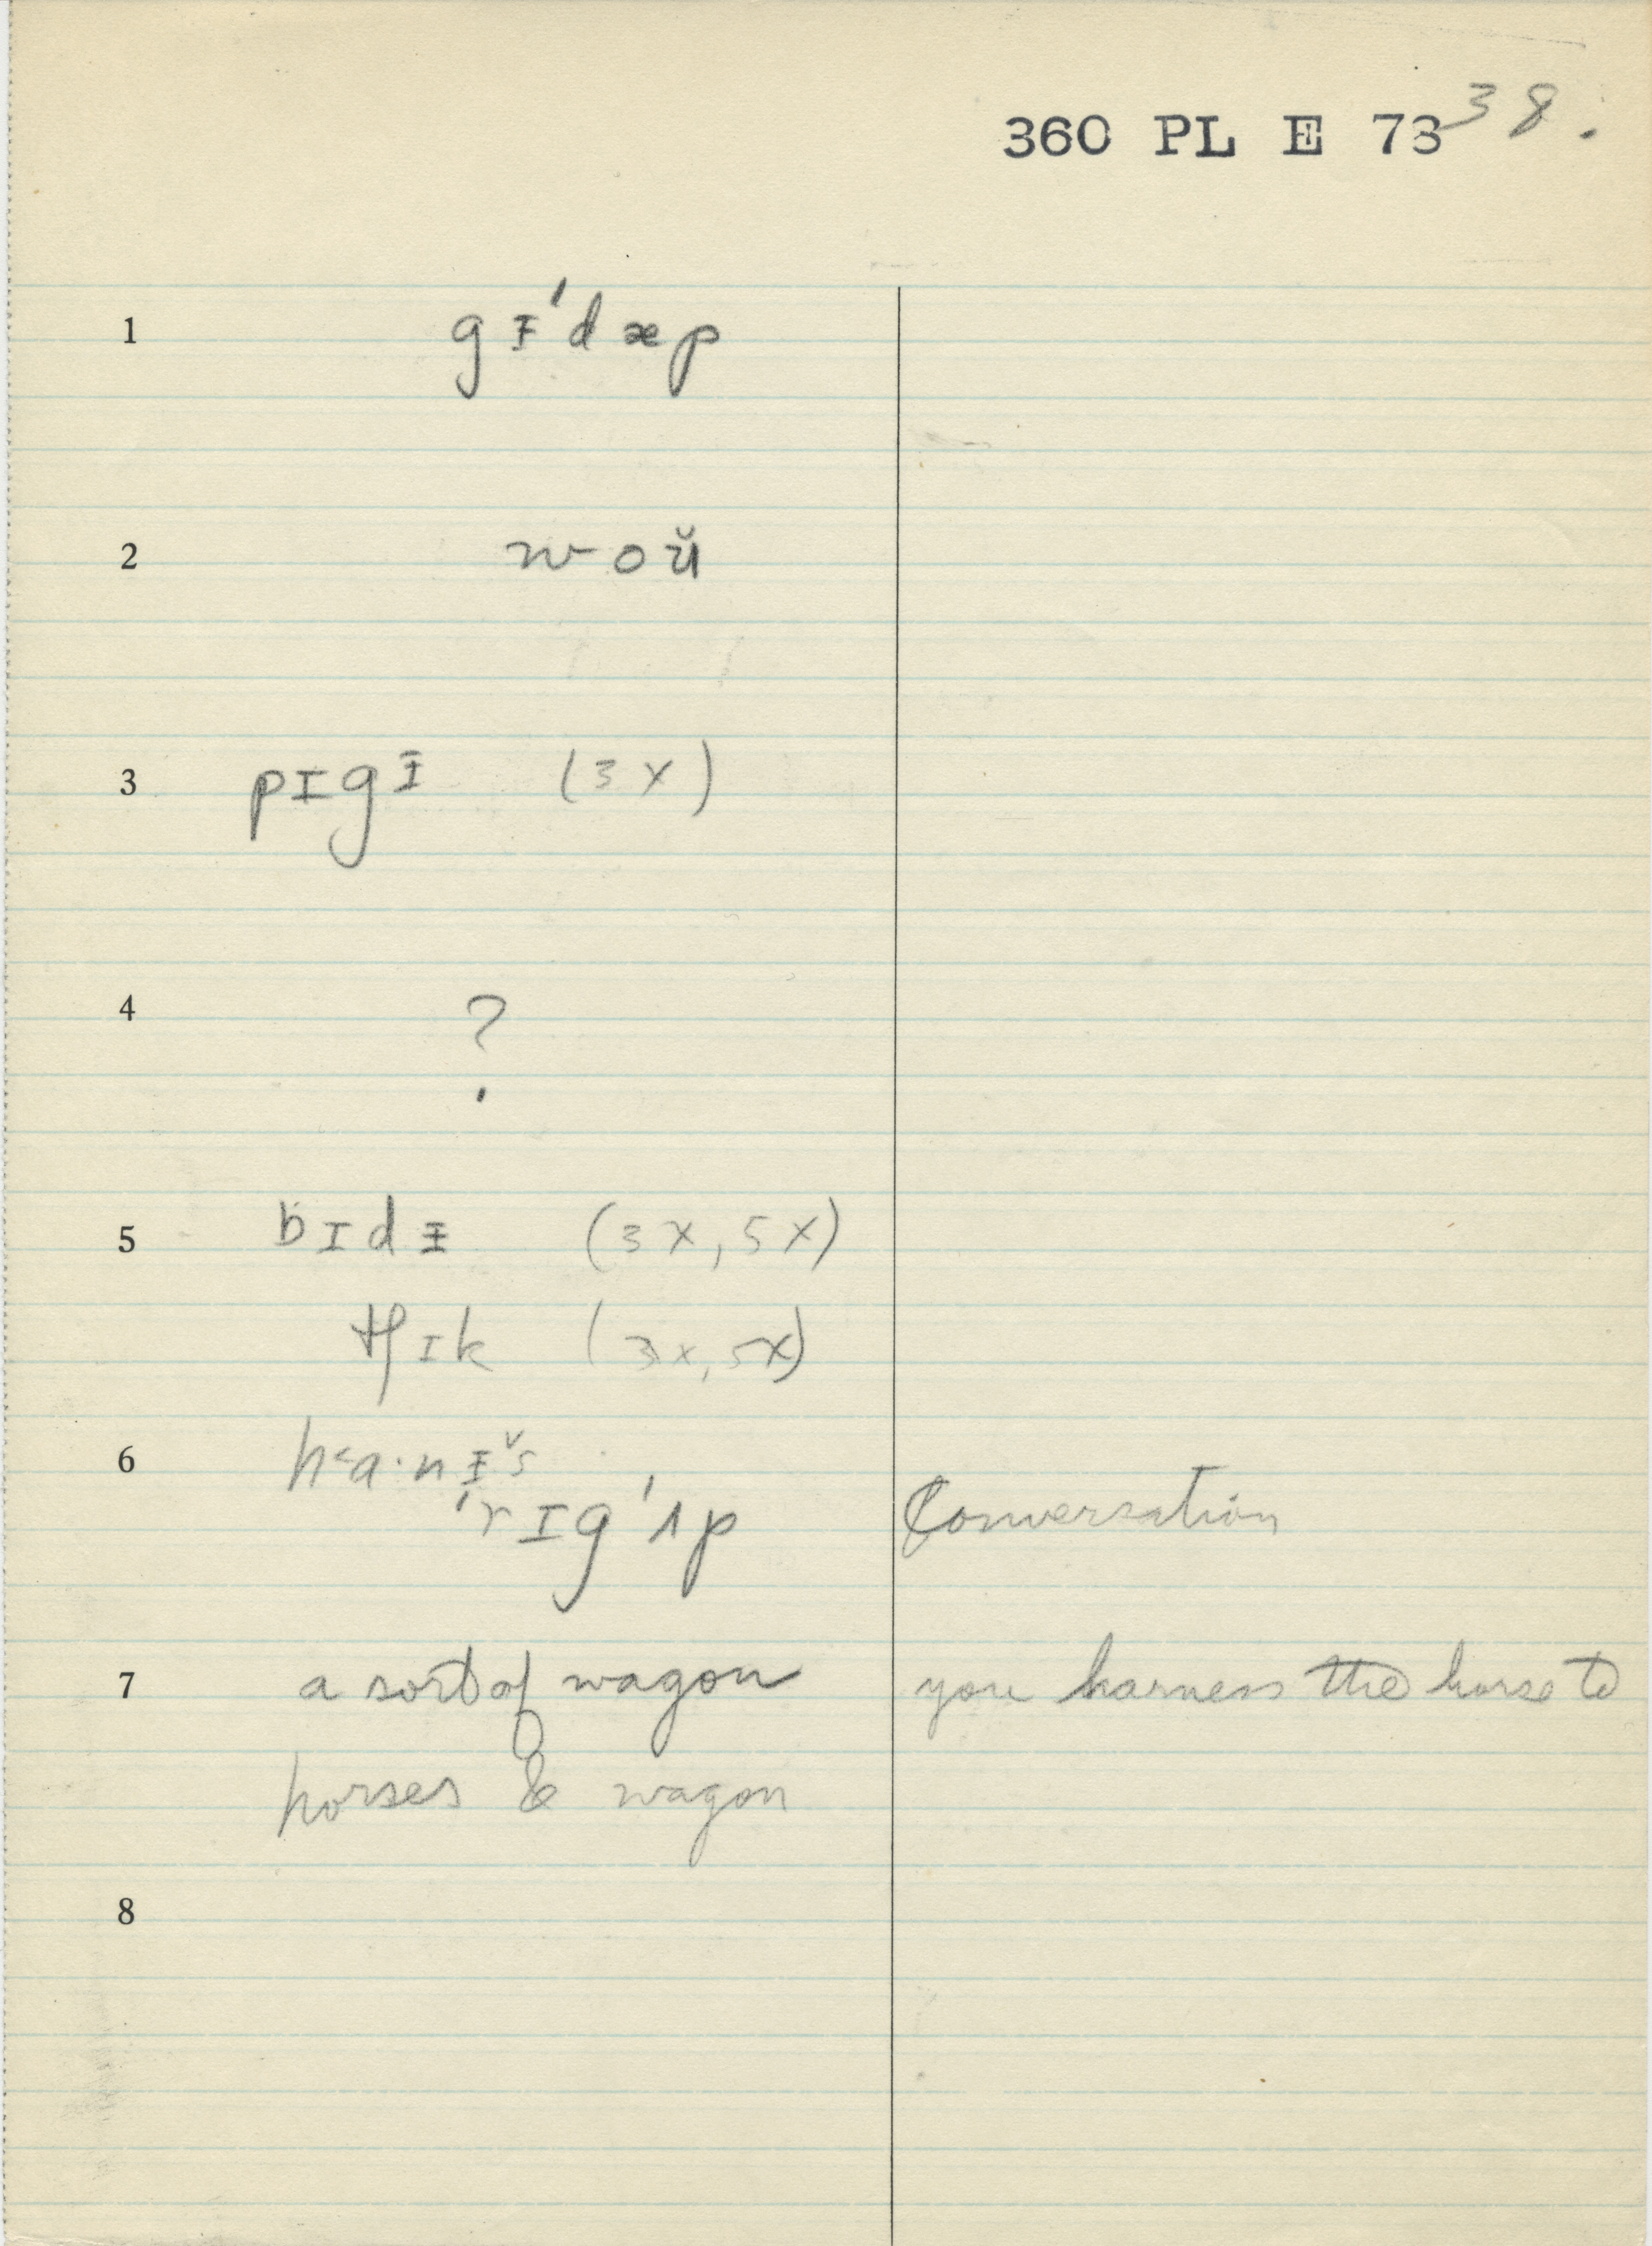 360 PL E 73 38.
1 gᵻ'dæp
2 woŭ
3 pɪgᵻ (3x)
4 ?
5 bɪdᵻ (3x, 5x)
tʃɪk (3x, 5x)
6 h˂a·nᵻˇs
'rɪg'ʌp Conversation
7 a sort of wagon you harness the horse to
horses & wagon
8